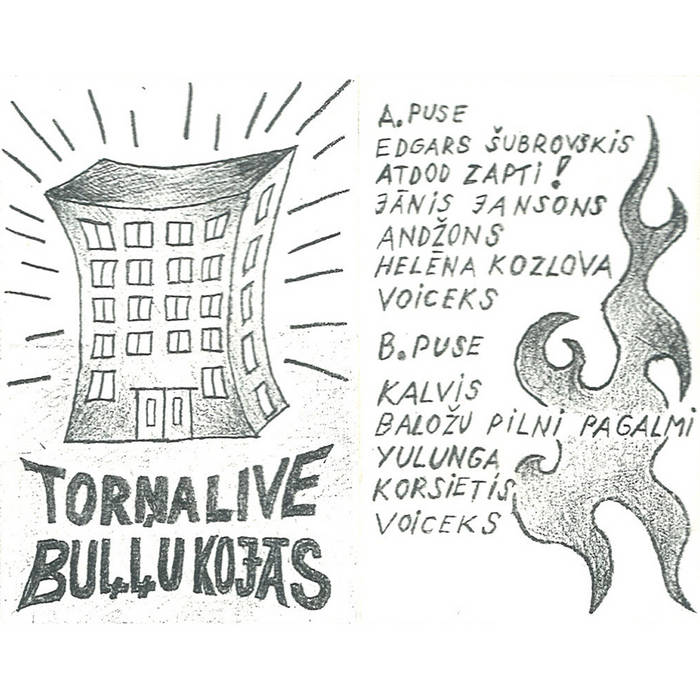 TORŅALIVE
BUĻĻUKOJĀS
A. PUSE
EDGARS ŠUBROVSKIS
ATDOD ZAPTI!
JĀNIS JANSONS
ANDŽONS
HELĒNA KOZLOVA
VOICEKS
B. PUSE
KALVIS
BALOŽU PILNI PAGALMI
YULUNGA
KORSIETIS
VOICEKS